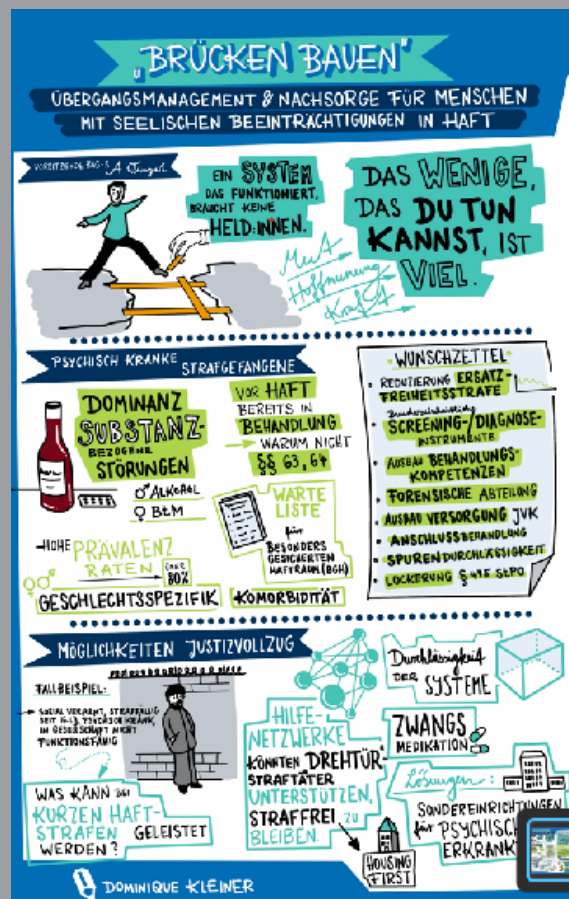 „BRÜCKEN BAUEN"
ÜBERGANGSMANAGEMENT & NACHSORGE FÜR MENSCHEN
MIT SEELISCHEN BEEINTRÄCHTIGUNGEN IN HAFT
VORSITZENDE BAG-S
EIN SYSTEM
DAS FUNKTIONIERT,
BRAUCHT KEINE
HELD:INNEN.
DAS WENIGE,
DAS DU TUN
KANNST, IST
VIEL.
Mut
Hoffnung
Kraft
PSYCHISCH KRANKE STRAFGEFANGENE
DOMINANZ
SUBSTANZ-
BEZOGENE
STÖRUNGEN
♂ ALKOHOL
♀ BtM
VOR HAFT
BEREITS IN
BEHANDLUNG
→ WARUM NICHT
§§ 63, 64
WARTE
LISTE
für
BESONDERS
GESICHERTEN
HAFTRAUM (BGH)
HOHE PRÄVALENZ
RATEN → ÜBER
80%
GESCHLECHTSSPEZIFIK
KOMORBIDITÄT
WUNSCHZETTEL
• REDUZIERUNG ERSATZ-
FREIHEITSSTRAFE
• SCREENING-/DIAGNOSE-
INSTRUMENTE
• AUSBAU BEHANDLUNGS-
KOMPETENZEN
• FORENSISCHE ABTEILUNG
• AUSBAU VERSORGUNG JVK
• ANSCHLUSSBEHANDLUNG
• SPURENDURCHLÄSSIGKEIT
• LOCKERUNG § StPO
MÖGLICHKEITEN JUSTIZVOLLZUG
FALLBEISPIEL:
→ SOZIAL VERARMT, STRAFFÄLLIG
SEIT PSYCHISCH KRANK,
IN GESELLSCHAFT NICHT
FUNKTIONSFÄHIG
WAS KANN BEI
KURZEN HAFT-
STRAFEN GELEISTET
WERDEN?
HILFE-
NETZWERKE
KÖNNTEN DREHTÜR-
STRAFTÄTER
UNTERSTÜTZEN,
STRAFFREI ZU
BLEIBEN.
Durchlässigkeit
DER SYSTEME
ZWANGS
MEDIKATION
Lösungen:
SONDEREINRICHTUNGEN
für PSYCHISCH
HOUSING
FIRST
DOMINIQUE KLEINER